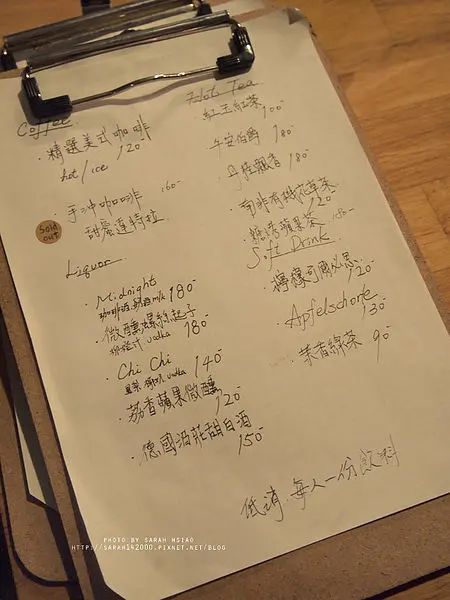 Coffee
・精選美式咖啡
hot / ice 120-
・手沖咖啡 160-
甜蜜連特拉
Sold out
Liquor
・Midnight 180-
咖啡酒 奶酒 milk
・微醺螺絲起子
柳橙汁 vodka 180-
・Chi Chi 140-
鳳梨 椰奶 vodka
・荔香蘋果微醺
120-
・德國酒莊甜白酒
150-
Hot Tea
・紅玉紅茶 100-
・午安伯爵 180-
・丹桂飄香 180-
・南非有機花草茶
120-
・蘋果茶 180-
Soft Drink
・檸檬可爾必思
120-
・Apfelschorle
130-
・茉香綠茶 90-
低消 每人一份飲料
PHOTO BY SARAH HSIAO
HTTP://SARAH142000.PIXNET.NET/BLOG